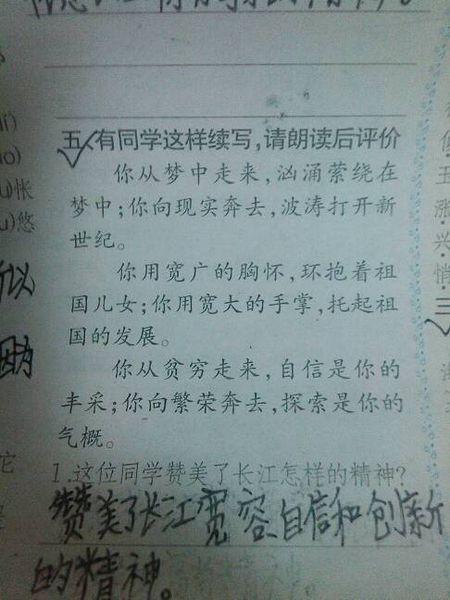 五、有同学这样续写，请朗读后评价
你从梦中走来，汹涌萦绕在
梦中；你向现实奔去，波涛打开新
世纪。
你用宽广的胸怀，环抱着祖
国儿女；你用宽大的手掌，托起祖
国的发展。
你从贫穷走来，自信是你的
丰采；你向繁荣奔去，探索是你的
气概。
1.这位同学赞美了长江怎样的精神？
赞美了长江宽容、自信和创新
的精神。
怅
悠
所以
因为
它
三